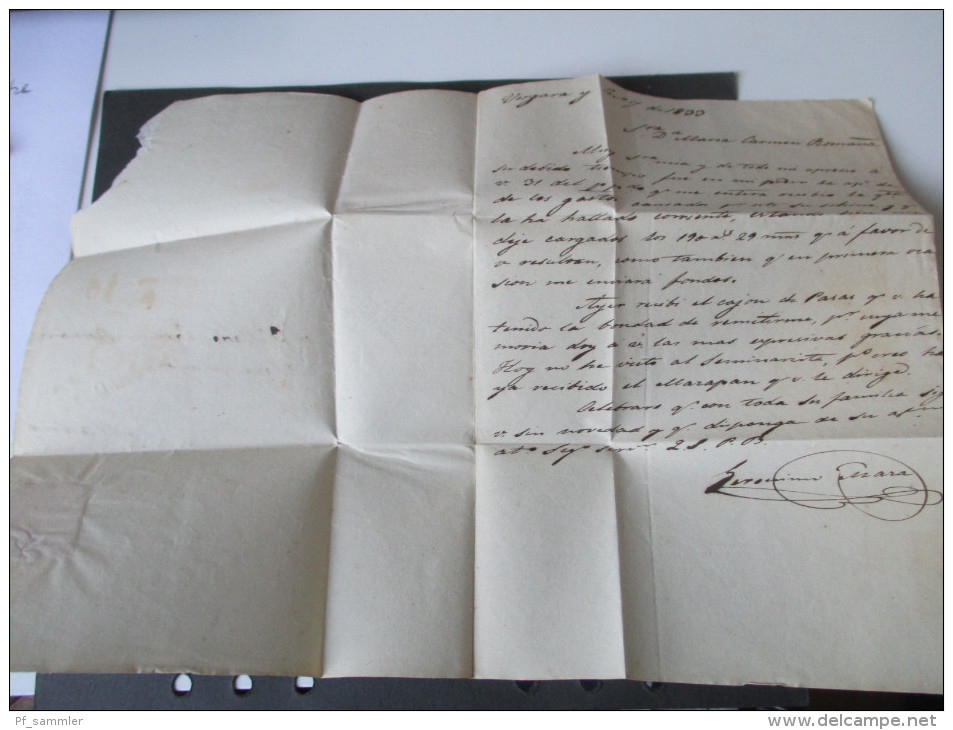 Vergara y
de 1833
Sra Da Maria Carmen Romaña
Muy Sra mia y de todo mi aprecio a
su debido tiempo fue en mi poder la apda de
v. 31 del
de los gastos causados
la ha hallado corriente, estando
dije cargados los 190 rs 29 mrs qe á favor de
v resultan, como tambien qe en primera oca
sion me enviará fondos.
Ayer recibí el cajon de Pasas qe v. ha
tenido la bondad de remitirme, pr cuya me
moria doy a v. las mas espresivas gracias.
Hoy no he visto al Seminarista, pr ha
ya recibido el Mazapan qe v. le dirige.
Celebraré qe con toda su familia siga
v. sin novedad y qe disponga de su afmo
ato Sego Servr Q. S. P. B.
Geronimo
Pf_sammler
www.delcampe.net